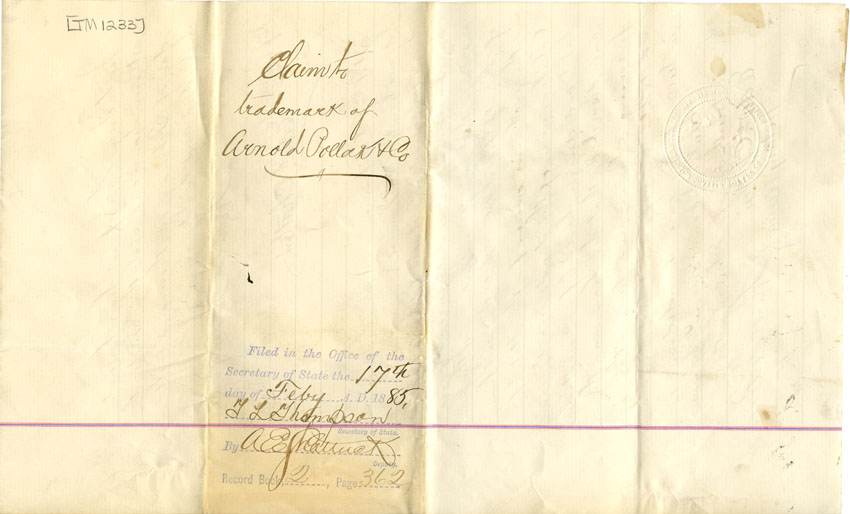 [TM 1233]
Claim to
trademark of
Arnold Pollak & Co
Filed in the Office of the
Secretary of State the 17th
day of Feby A. D. 1885,
T L Thompson
Secretary of State.
By A E
Deputy.
Record Book, 2, Page 362